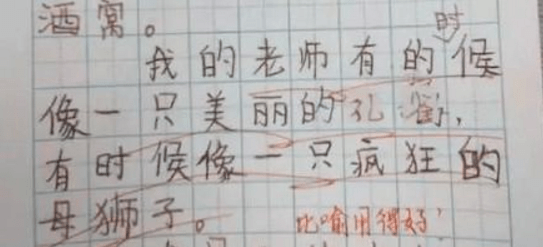 酒窝。
我的老师有的时候
像一只美丽的孔雀，
有时候像一只疯狂的
母狮子。
比喻用得好